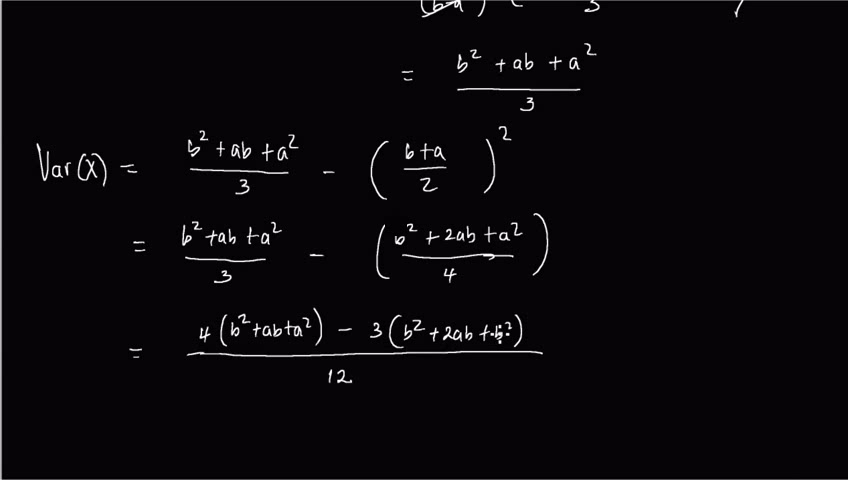 = b² + ab + a² / 3
Var(X) = b² + ab + a² / 3 - ( b + a / 2 )²
= b² + ab + a² / 3 - ( b² + 2ab + a² / 4 )
= 4 ( b² + ab + a² ) - 3 ( b² + 2ab + ² ) / 12